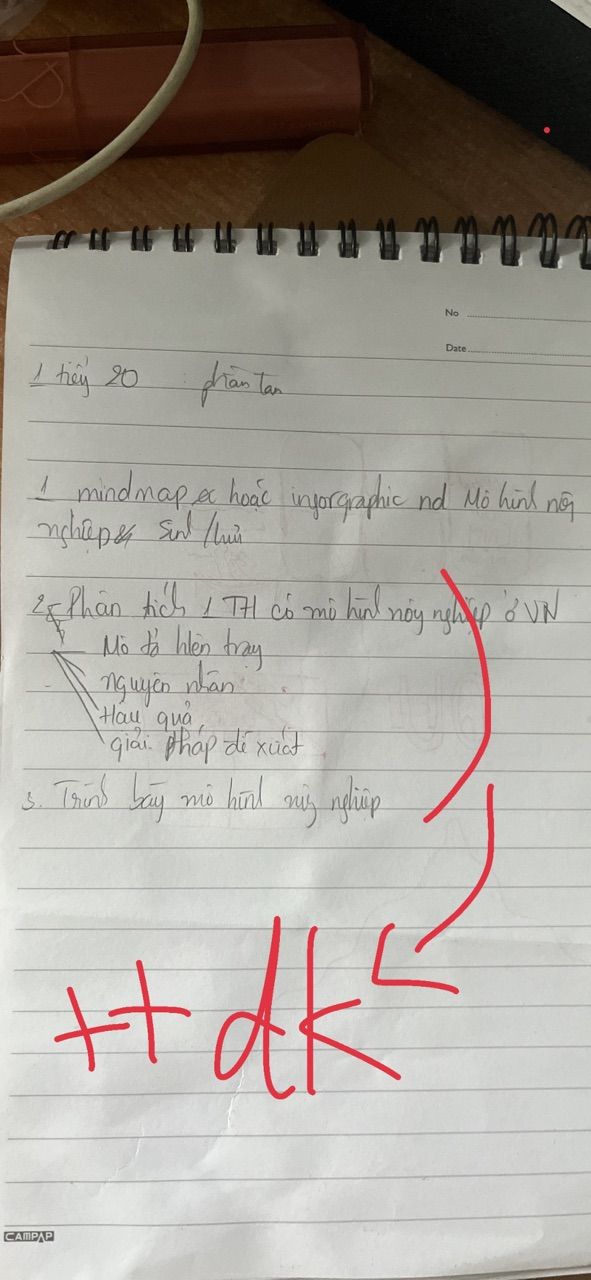 No
Date
1 tiếg 20 : phàn tan
1 mindmap hoặc inforgraphic nd Mô hình nôg
nghiệp Sinh thái
2. Phân tích 1 TH có mô hình nôg nghiệp ở VN
Mô tả hiện trạg
nguyên nhân
Hậu quả
giải pháp đề xuất
3. Trình bày mô hình nôg nghiệp
++ đk
CAMPAP